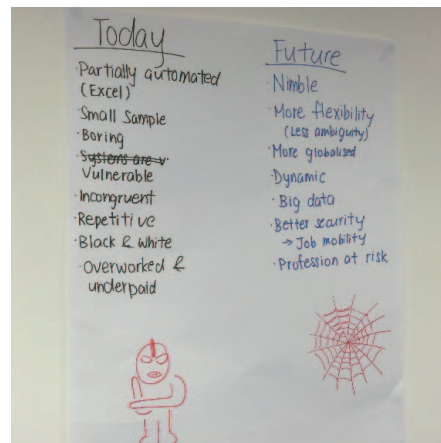 Today
· Partially automated
(Excel)
· Small Sample
· Boring
· Systems are v
Vulnerable
· Incongruent
· Repetitive
· Black & White
· Overworked &
underpaid
Future
· Nimble
· More flexibility
(Less ambiguity)
· More globalised
· Dynamic
· Big data
· Better security
→ Job mobility
· Profession at risk